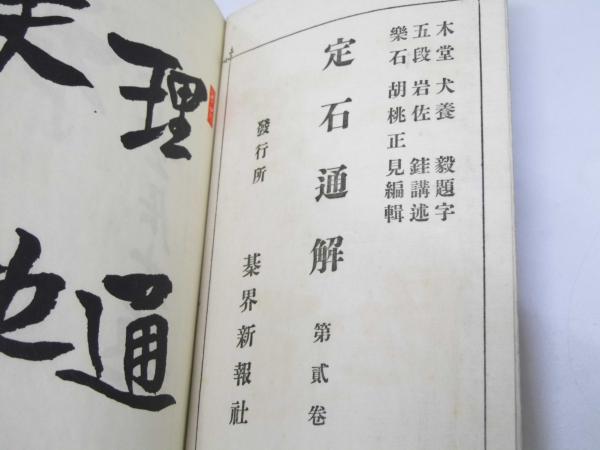 木堂 犬養 毅題字
五段 岩佐 銈講述
樂石 胡桃正見編輯
定石通解 第貳卷
發行所 棊界新報社
理通
也